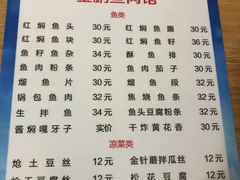 鱼类
红焖鱼头 30元 红焖鱼腹 30元
红焖鱼块 30元 红焖鱼 36元
鱼籽鱼杂 34元 酥鱼排 30元
鱼肉粉条 30元 鱼肉茄子 30元
熘鱼片 30元 熘鱼段 32元
锅包鱼肉 32元 焦烧鱼条 32元
生拌鱼 34元 鱼头豆腐粉条 32元
酱焖嘎牙子 实价 干炸黄花香 30元
凉菜类
炝土豆丝 12元 金针蘑拌瓜丝 12元
12元 松花豆腐 12元